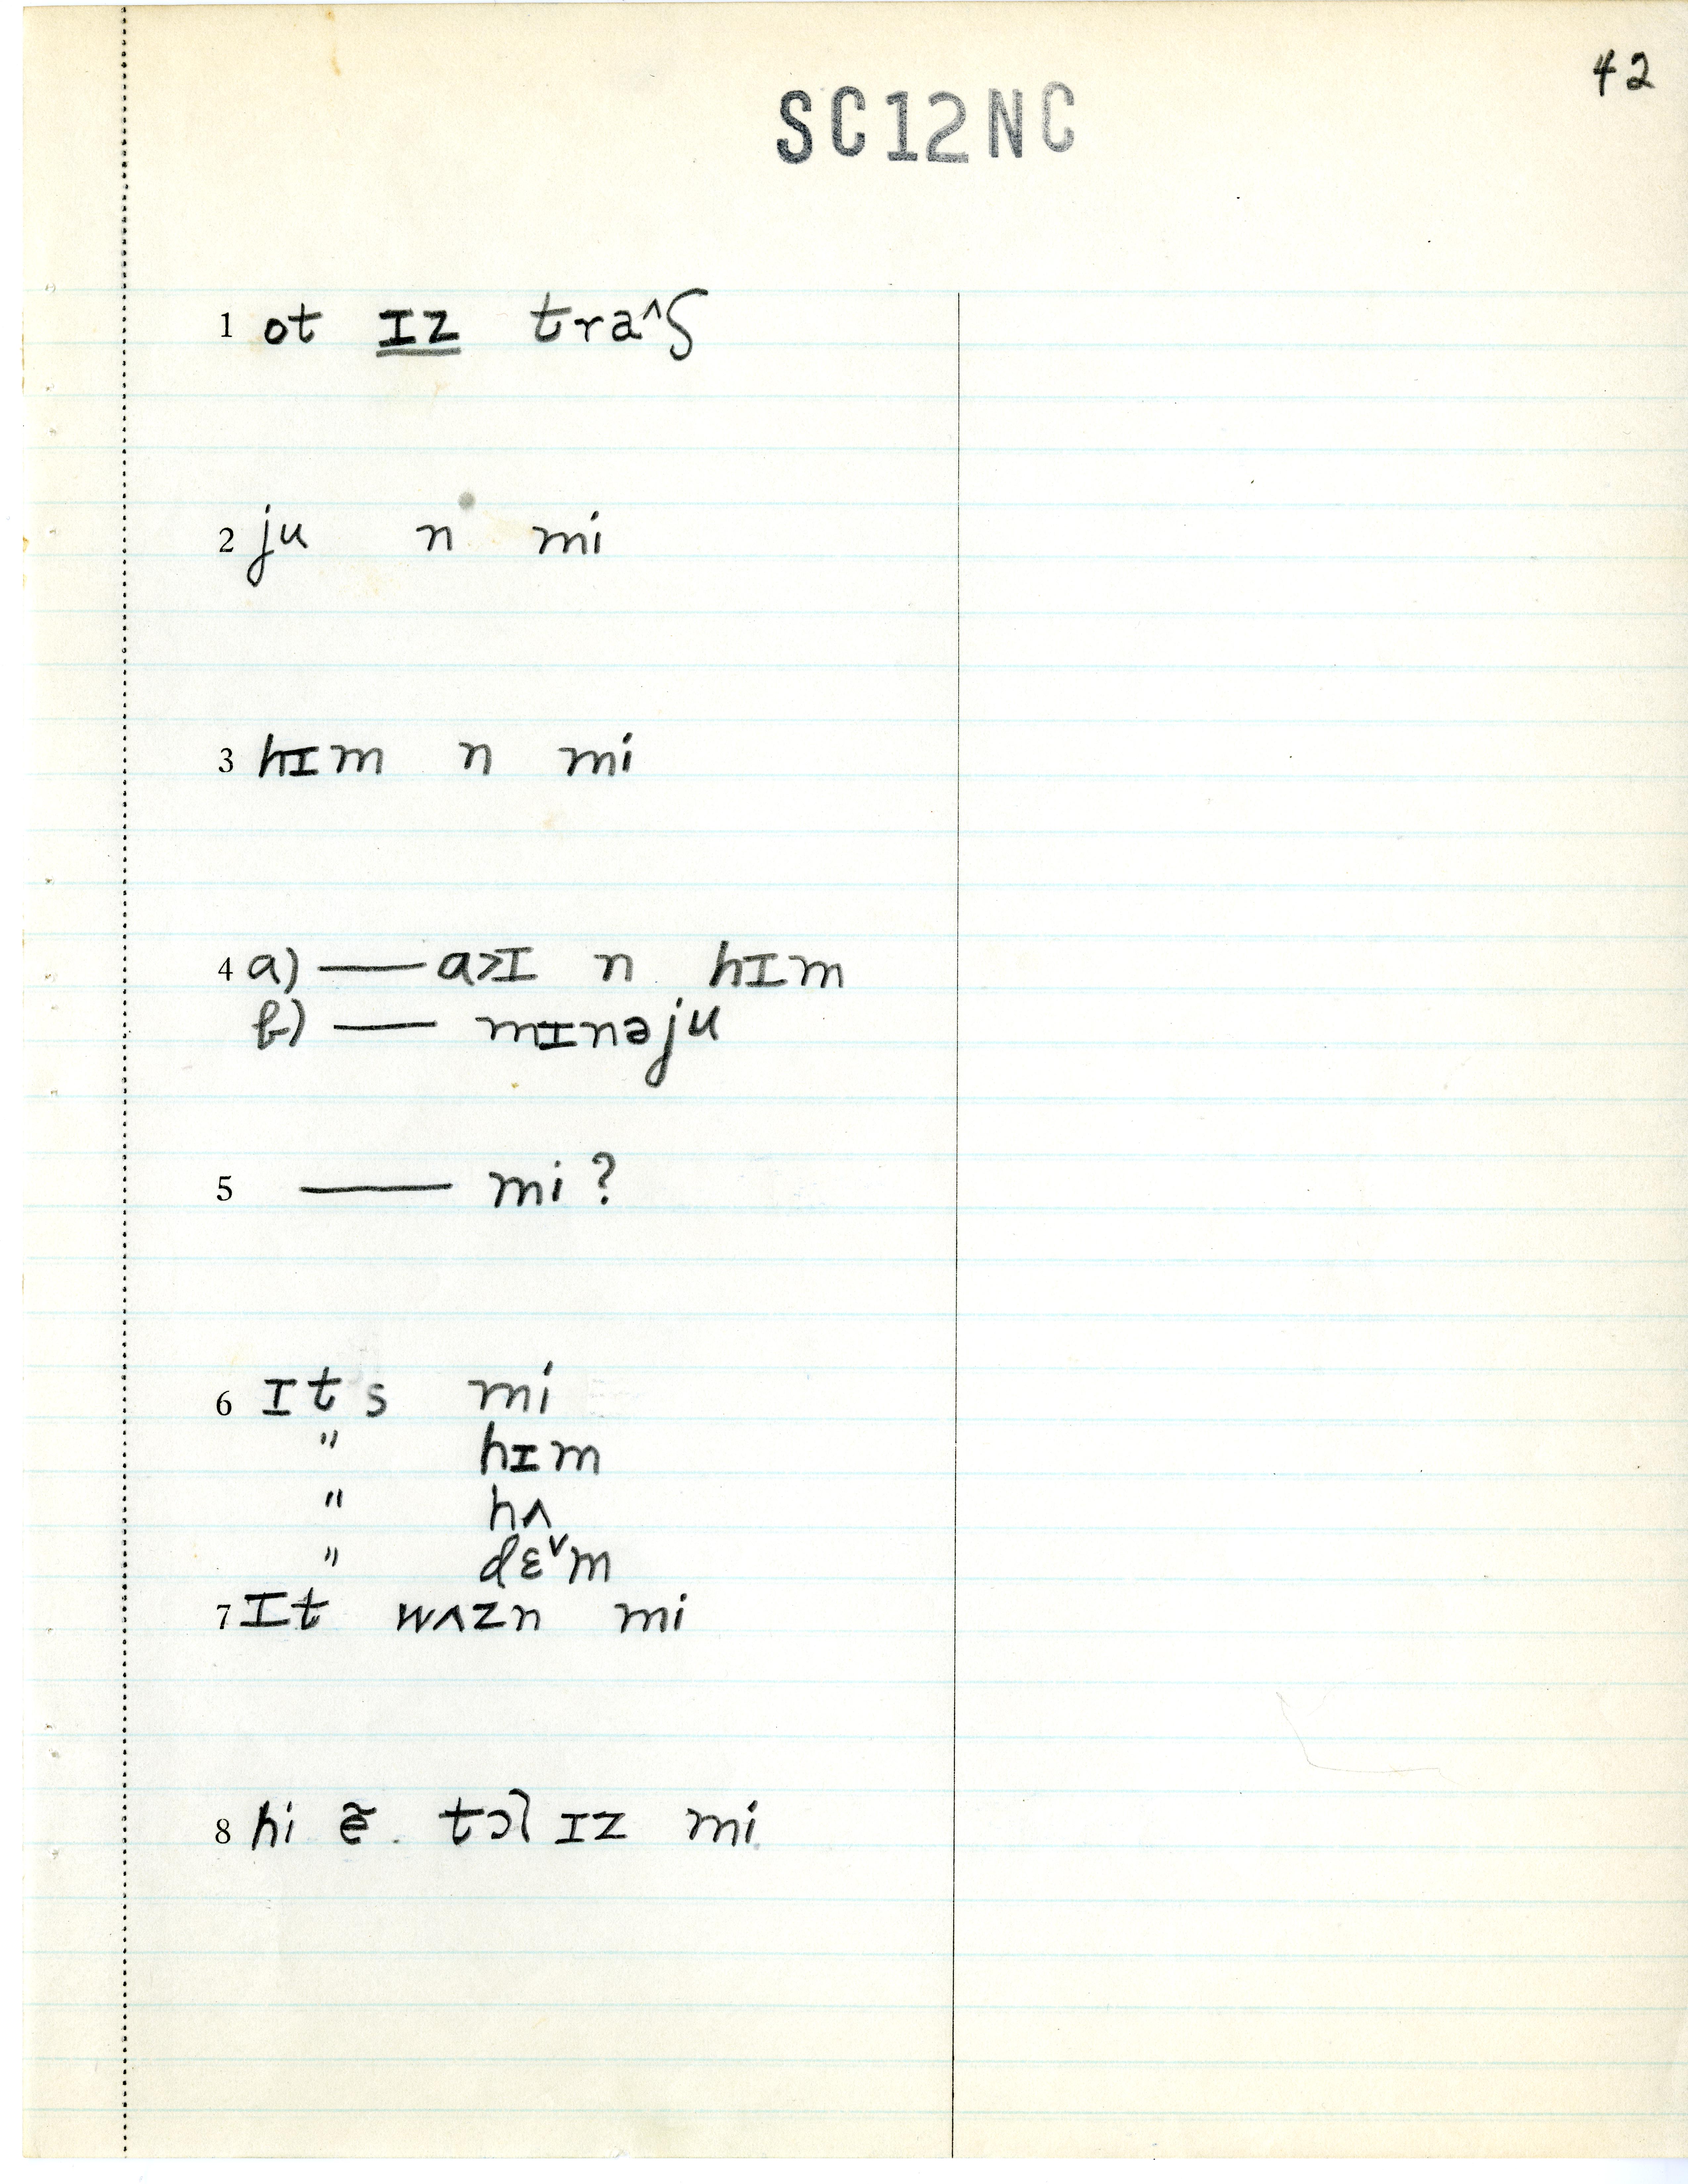 42
SC12NC
1 ot ɪz tra^ʃ
2 ju n mi
3 hɪm n mi
4 a) — a>ɪ n hɪm
b) — mɪnəju
5 — mi ?
6 ɪts mi
" hɪm
" hʌ
" dɛˇm
7 ɪt wʌzn mi
8 hi tɔl ɪz mi